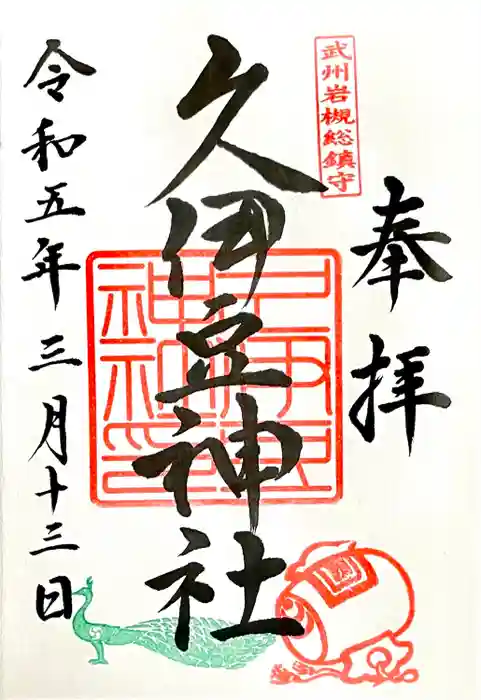 武州岩槻総鎮守
奉拝
久伊豆神社
久伊豆神社印
令和五年三月十三日